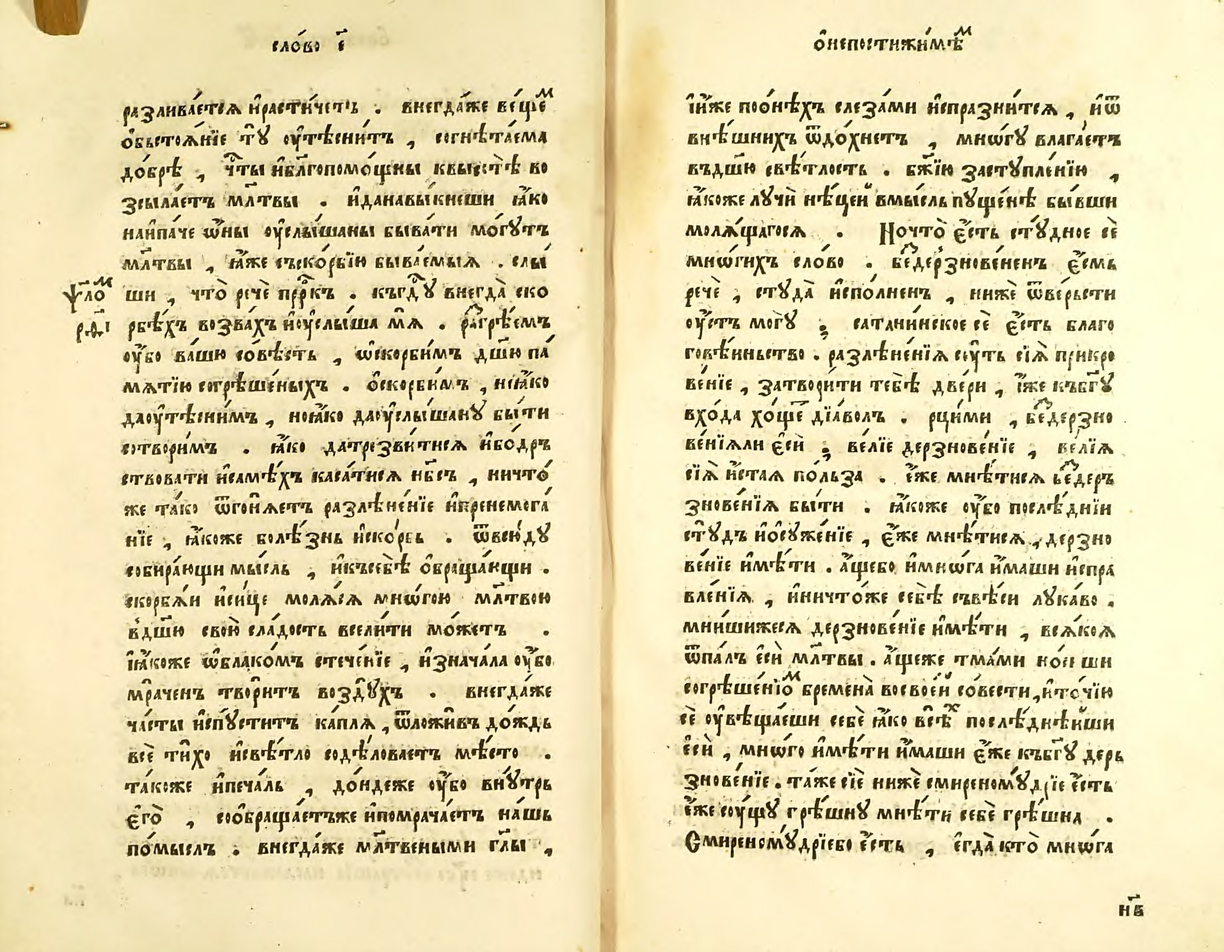 сло́во є҃
разлива́етсѧ и҆расти́четъ . внегда́же ве́щїеⷨ
ѡбьстоѧ́нїе тꙋ̀ ᲂу҆тѣсни́тъ , согнѣта́ема
до́брѣ , чⷭ҇ты и҆бл҃гопомо́щны квы́сотѣ во
зсыла́етъ мл҃твы . и҆данавы́кнеши ꙗ҆́ко
наи́паче ѻ҆́ны ᲂу҆слы́шаны быва́ти мо́гꙋтъ
мл҃твы , ꙗ҆́же съско́рбїю быва́емыѧ . слы́
ши , что̀ речѐ прⷪ҇ркъ . къгдⷭ҇ꙋ внегда̀ ско
рбѣ́хъ возва́хъ и҆ᲂу҆слы́ша мѧ̀ . разгрѣ́емъ
ᲂу҆́бо ва́шю со́вѣсть , ѡ҆скорби́мъ дш҃ю па́
мѧтїю согрѣше́ныхъ . ѻ҆скорби́мъ , неꙗ҆́ко
даᲂу҆тѣсни́мъ , ноꙗ҆́ко даᲂу҆слы́шанꙋ бы́ти
сотвори́мъ . ꙗ҆́ко датрезви́тисѧ и҆бодръ
ствовати и҆самѣ́хъ каса́тисѧ нб҃съ , ничто́
же та́ко ѿгонѧ́етъ разлѣне́нїе и҆пренемога́
нїе , ꙗ҆́коже болѣ́знь и҆ско́рбь . ѿвсю́дꙋ
собира́ющи мы́сль , и҆късебѣ̀ ѻ҆браща́ющи .
скорбѧ́и и҆си́це молѧ́сѧ мно́гою мл҃твою
вдш҃ю свою̀ сла́дость всели́ти мо́жетъ .
ꙗ҆́коже ѻ҆́блакомъ стече́нїе , и҆знача́ла ᲂу҆́бо
мра́ченъ твори́тъ возд́ꙋхъ . внегда́же
ча́сты и҆спꙋ́ститъ ка́плѧ , ѿложи́въ до́ждь
всѐ ти́хо и҆свѣ́тло содѣ́ловаетъ мѣ́сто .
та́коже и҆печа́ль , до́ндеже ᲂу҆́бо внꙋ́трь
є҆го̀ , соѡбраща́етъже и҆помрача́етъ на́шь
по́мыслъ . внегда́же мл҃твеными гл҃ы ,
ѱало́ⷨ
р҃ѳ҃і
ѻ҆непостижи́мѣⷨ
и҆и҆́же поѻ҆́нѣхъ слеза́ми и҆спразни́тсѧ , и҆ѿ
внѣ́шнихъ ѿдо́хнетъ , мно́гꙋ влага́етъ
въдш҃ю свѣ́тлость . бж҃їю застꙋпле́нїю ,
ꙗ҆́коже лꙋчѝ нѣ́цеи вмы́сль пꙋще́нѣ бы́вши
молѧ́щагосѧ . Ночто̀ є҆́сть стꙋ́дное сѐ
мно́гихъ сло́во . беⷥдерзнове́ненъ є҆́смь
речѐ , стꙋда̀ и҆спо́лненъ , нижѐ ѿве́рьсти
ᲂу҆́стъ могꙋ̀ ; сатани́нское сѐ є҆́сть благо
говѣ́иньство . разлѣне́нїѧ сꙋ́ть сїѧ̀ прикро
ве́нїе , затвори́ти тебѣ̀ две́ри , ꙗ҆́же къбг҃ꙋ
вхо́да хо́щеⷮ дїа́волъ . рцы́ми , беⷥдерзно
ве́нїѧли є҆сѝ ; ве́лїе дерзнове́нїе , ве́лїѧ
сїѧ̀ и҆́стаѧ по́льза . є҆́же мнѣ́тисѧ беⷥдерⸯ
знове́нїѧ бы́ти . ꙗ҆́коже ᲂу҆́бо послѣ́днїи
стꙋ́дъ и҆ѡ҆сꙋже́нїе , є҆́же мнѣ́тисѧ , дерзно
ве́нїе и҆мѣ́ти . а҆́щебо и҆мно́га и҆́маши и҆спра
вле́нїѧ , и҆ничто́же себѣ̀ съвѣ́си лꙋка́во .
мни́шижесѧ дерзнове́нїе и҆мѣ́ти , всѧ́коѧ
ѿпа́лъ є҆сѝ мл҃твы . а҆́щеже тма́ми но́сиши
согрѣше́нїоⷨ бремена̀ восвое́и со́вести , и҆то́чїю
сѐ ᲂу҆вѣща́еши себѐ ꙗ҆́ко всѣⷯ послѣ́днѣиши
є҆сѝ , мно́го и҆мѣ́ти и҆́маши є҆́же къбг҃ꙋ дерь
знове́нїе . та́же сїѐ нижѐ смиреномꙋ́дрїе є҆́сть
є҆́же сꙋ́щꙋ грѣ́шнꙋ мнѣ́ти себѐ грѣ́шна .
Смиреномꙋ́дрїебо є҆́сть , є҆гда̀ кто̀ мно́га
н҃в